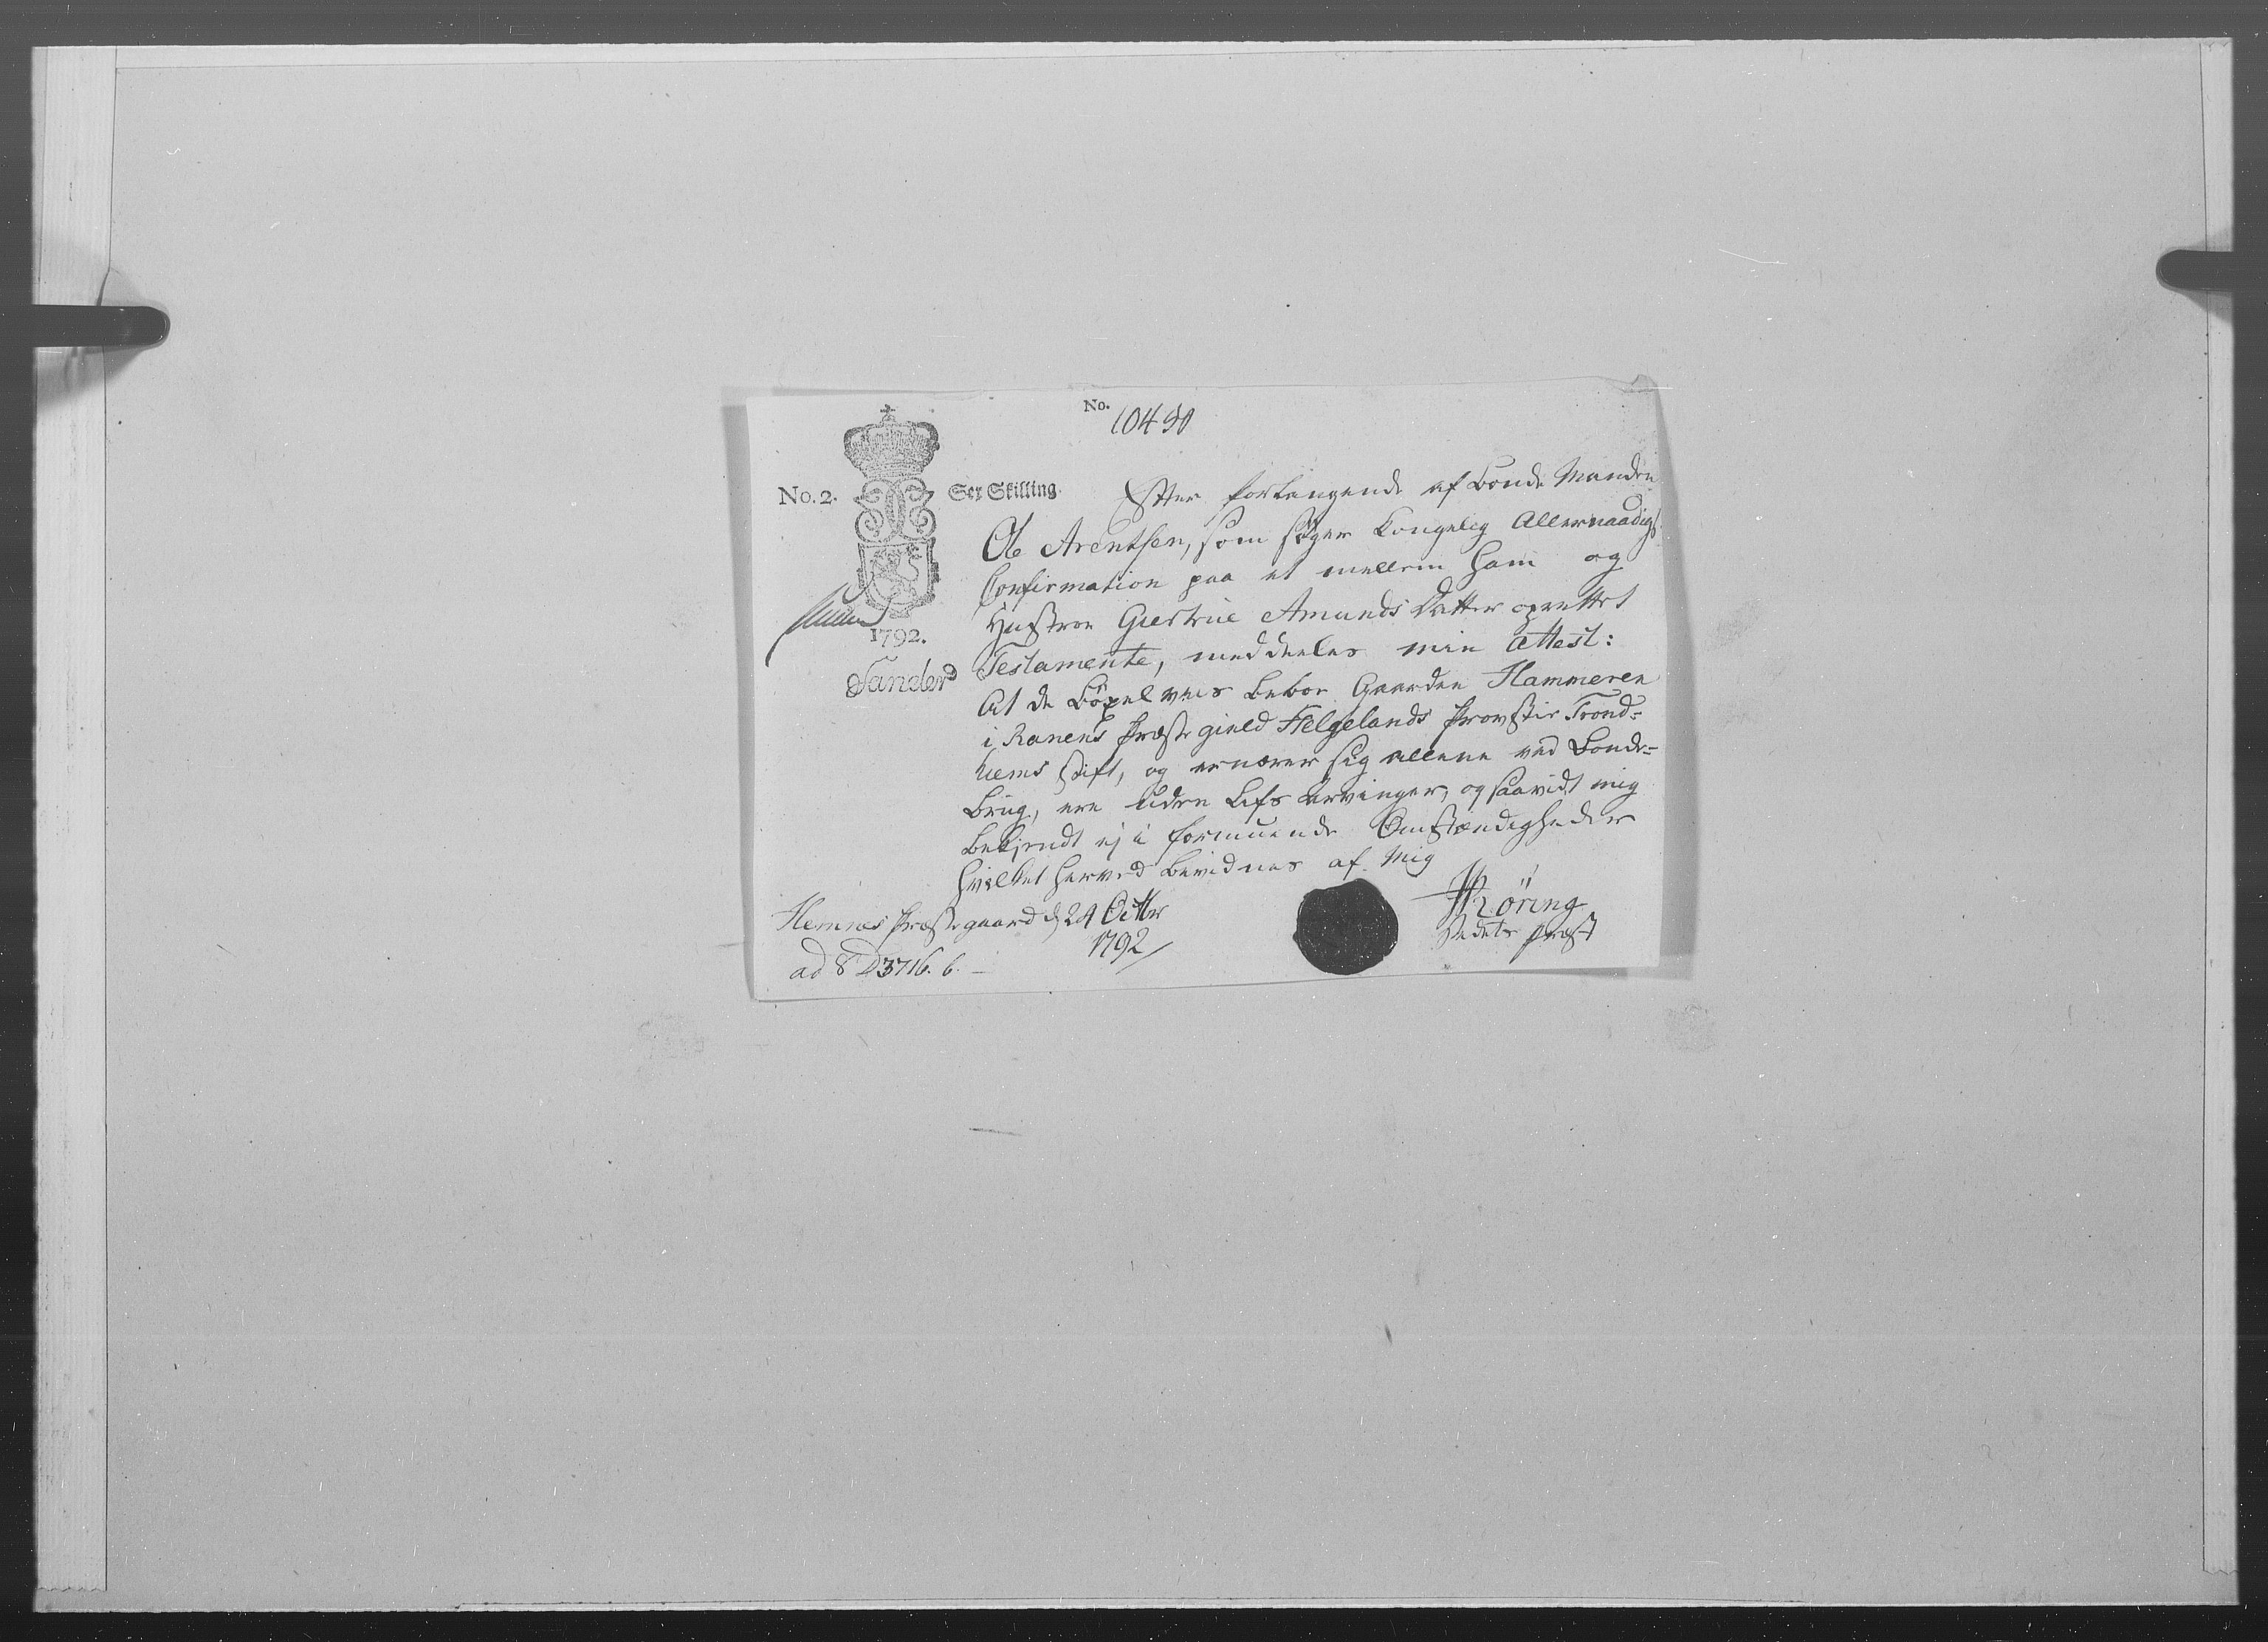 No. 10490
No. 2. Sex Skilling.
1792.
Efter forlangende af Bonde Manden
Ole Arentsen, som søger Kongelig Allernaadigst
Confirmation paa et mellem ham og
Hustroe Giertrue Amunds Datter oprettet
Testamente, meddeeles min Attest:
At de Böxelviis beboe Gaarden Hammeren
i Ranens Præstegield Helgelands Provstie Trond-
hiems Stift, og ernærer sig allene ved Bonde-
brug, ere uden Lifs Arvinger, og saavidt mig
bekjendt ej i formuende Omstændigheder
hvilket herved bevidnes af Mig
Hemnes Præstegaard d 24 Octbr
1792
Röring
Stedets Præst
ad 8 D 3716. b.